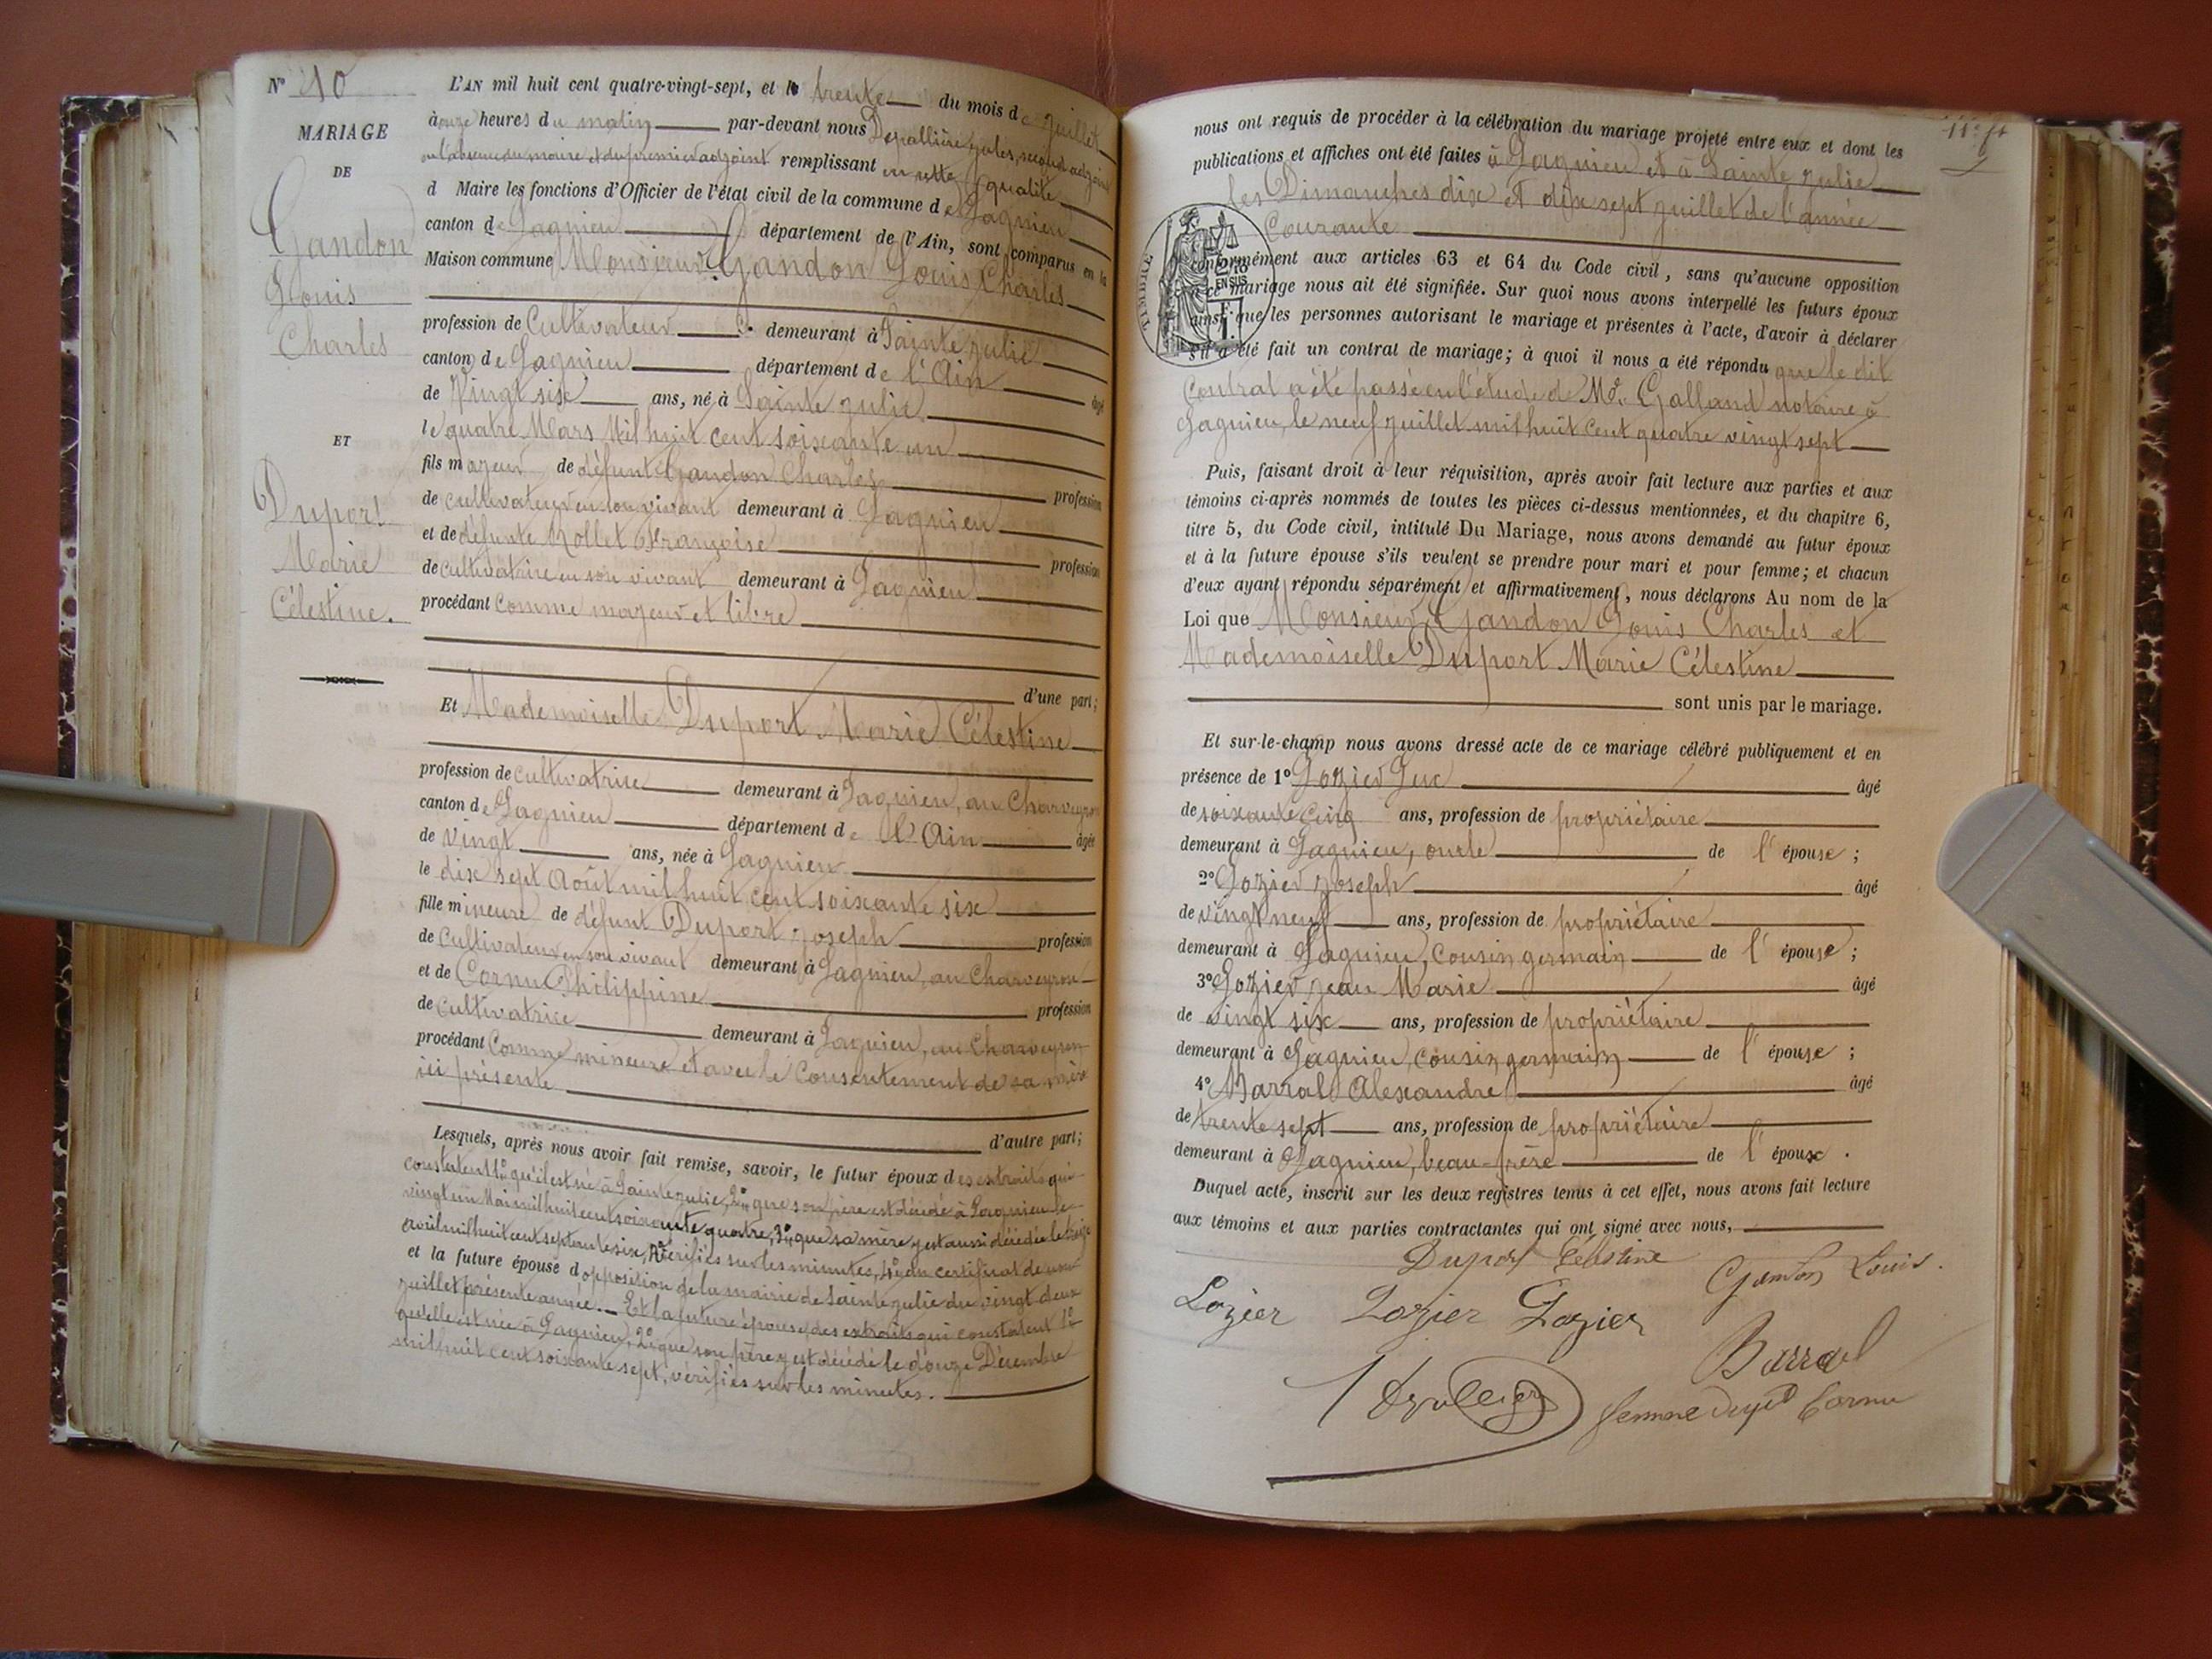 N° 10
MARIAGE
DE
Gandon
Louis
Charles
ET
Duport
Marie
Célestine.
L'AN mil huit cent quatre-vingt-sept, et le trente du mois de juillet
à onze heures du matin par-devant nous Depallière Jules, second adjoint
en l'absence du maire et du premier adjoint remplissant en cette qualité
d Maire les fonctions d'Officier de l'état civil de la commune de Lagnieu
canton de Lagnieu département de l'Ain, sont comparus en la
Maison commune Monsieur Gandon Louis Charles
profession de Cultivateur demeurant à Sainte Julie
canton de Lagnieu département de l'Ain âgé
de Vingt six ans, né à Sainte Julie
le quatre Mars Mil huit cent soixante un
fils majeur de défunt Gandon Charles profession
de cultivateur en son vivant demeurant à Lagnieu
et de défunte Rollet Françoise profession
de cultivatrice en son vivant demeurant à Lagnieu
procédant Comme majeur et libre
d'une part;
Et Mademoiselle Duport Marie Célestine
profession de cultivatrice demeurant à Lagnieu, au Charveyron
canton de Lagnieu département de l'Ain âgée
de vingt ans, née à Lagnieu
le dix sept Août mil huit cent soixante six
fille mineure de défunt Duport Joseph profession
de Cultivateur en son vivant demeurant à Lagnieu, au Charveyron
et de Cornu Philippine profession
de cultivatrice demeurant à Lagnieu, au Charveyron
procédant Comme mineure et avec le Consentement de sa mère
ici présente
d'autre part;
Lesquels, après nous avoir fait remise, savoir, le futur époux des extraits qui
constatent 1° qu'il est né à Sainte Julie, 2° que son père est décédé à Lagnieu le
vingt un Mai mil huit cent soixante quatre, 3° que sa mère y est aussi décédée le
avril mil huit cent septante six, vérifiés sur les minutes, 4° du certificat de non
et la future épouse d opposition de la mairie de Sainte Julie du vingt deux
juillet présente année. _ Et la future épouse, des extraits qui constatent 1°
qu'elle est née à Lagnieu, 2° que son père y est décédé le douze Décembre
mil huit cent soixante sept, vérifiés sur les minutes.
nous ont requis de procéder à la célébration du mariage projeté entre eux et dont les
publications et affiches ont été faites à Lagnieu et à Sainte Julie
les Dimanches dix et dix sept juillet de l'année
Courante
TIMBRE
EN SUS
conformément aux articles 63 et 64 du Code civil, sans qu'aucune opposition
à ce mariage nous ait été signifiée. Sur quoi nous avons interpellé les futurs époux
ainsi que les personnes autorisant le mariage et présentes à l'acte, d'avoir à déclarer
s'il a été fait un contrat de mariage; à quoi il nous a été répondu que le dit
Contrat a été passé en l'étude de Me. Galland notaire à
Lagnieu, le neuf juillet mil huit cent quatre vingt sept
Puis, faisant droit à leur réquisition, après avoir fait lecture aux parties et aux
témoins ci-après nommés de toutes les pièces ci-dessus mentionnées, et du chapitre 6,
titre 5, du Code civil, intitulé Du Mariage, nous avons demandé au futur époux
et à la future épouse s'ils veulent se prendre pour mari et pour femme; et chacun
d'eux ayant répondu séparément et affirmativement, nous déclarons Au nom de la
Loi que Monsieur Gandon Louis Charles et
Mademoiselle Duport Marie Célestine
sont unis par le mariage.
Et sur-le-champ nous avons dressé acte de ce mariage célébré publiquement et en
présence de 1° Lozier Luc âgé
de soixante cinq ans, profession de propriétaire
demeurant à Lagnieu, oncle de l'épouse;
2° Lozier Joseph âgé
de vingt neuf ans, profession de propriétaire
demeurant à Lagnieu, Cousin germain de l'épouse;
3° Lozier Jean Marie âgé
de vingt six ans, profession de propriétaire
demeurant à Lagnieu, cousin germain de l'épouse;
4° Barral Alexandre âgé
de trente sept ans, profession de propriétaire
demeurant à Lagnieu, beau-frère de l'épouse.
Duquel acte, inscrit sur les deux registres tenus à cet effet, nous avons fait lecture
aux témoins et aux parties contractantes qui ont signé avec nous,
Duport Célestine Gandon Louis.
Lozier Lozier Lozier
Barral
femme Cornu